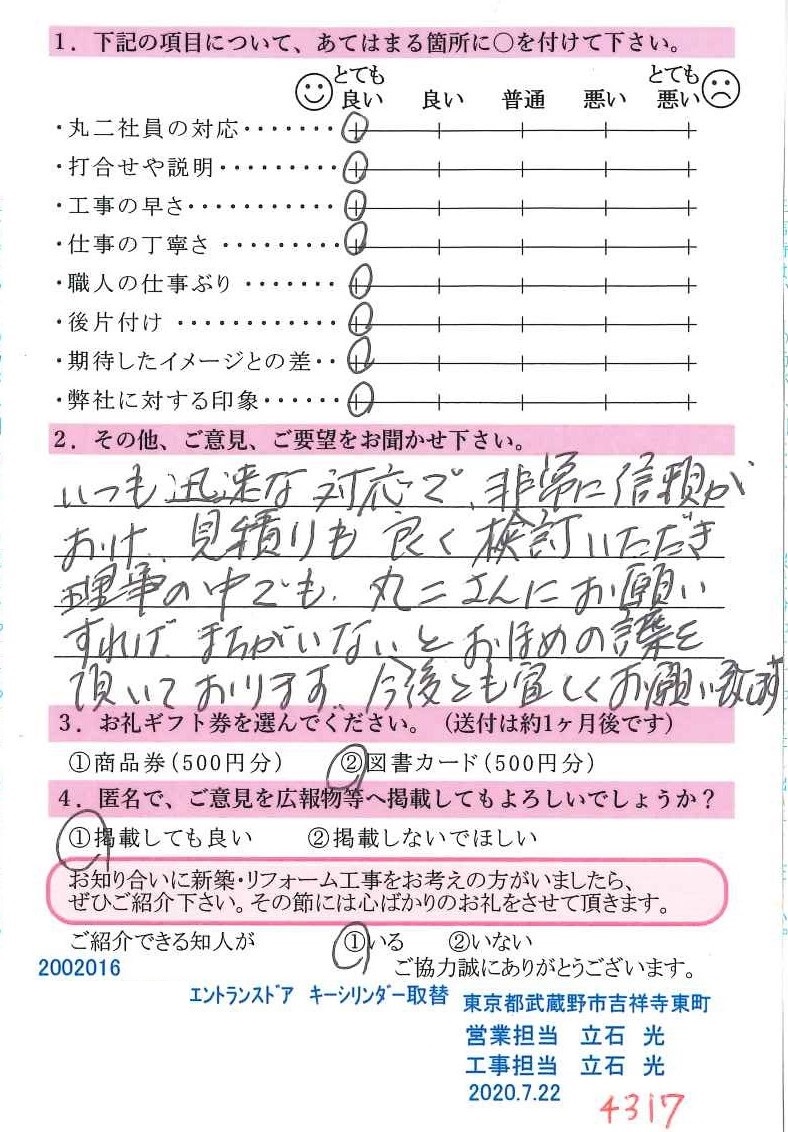 1．下記の項目について、あてはまる箇所に○を付けて下さい。
とても良い 良い 普通 悪い とても悪い
・丸二社員の対応・・・・・・・
・打合せや説明・・・・・・・・・
・工事の早さ・・・・・・・・・・・
・仕事の丁寧さ ・・・・・・・・・
・職人の仕事ぶり ・・・・・・・
・後片付け ・・・・・・・・・・・・
・期待したイメージとの差・・
・弊社に対する印象・・・・・・
2．その他、ご意見、ご要望をお聞かせ下さい。
いつも迅速な対応で、非常に信頼が
おけ、見積りも良く検討いただき
理事の中でも、丸二さんにお願い
すれば、まちがいないとおほめの言葉を
頂いております。今後とも宜しくお願い致します
3．お礼ギフト券を選んでください。（送付は約1ヶ月後です）
①商品券（500円分） ②図書カード（500円分）
4．匿名で、ご意見を広報物等へ掲載してもよろしいでしょうか？
①掲載しても良い ②掲載しないでほしい
お知り合いに新築・リフォーム工事をお考えの方がいましたら、
ぜひご紹介下さい。その節には心ばかりのお礼をさせて頂きます。
ご紹介できる知人が ①いる ②いない
2002016 ご協力誠にありがとうございます。
エントランスドア キーシリンダー取替 東京都武蔵野市吉祥寺東町
営業担当 立石 光
工事担当 立石 光
2020.7.22
4317